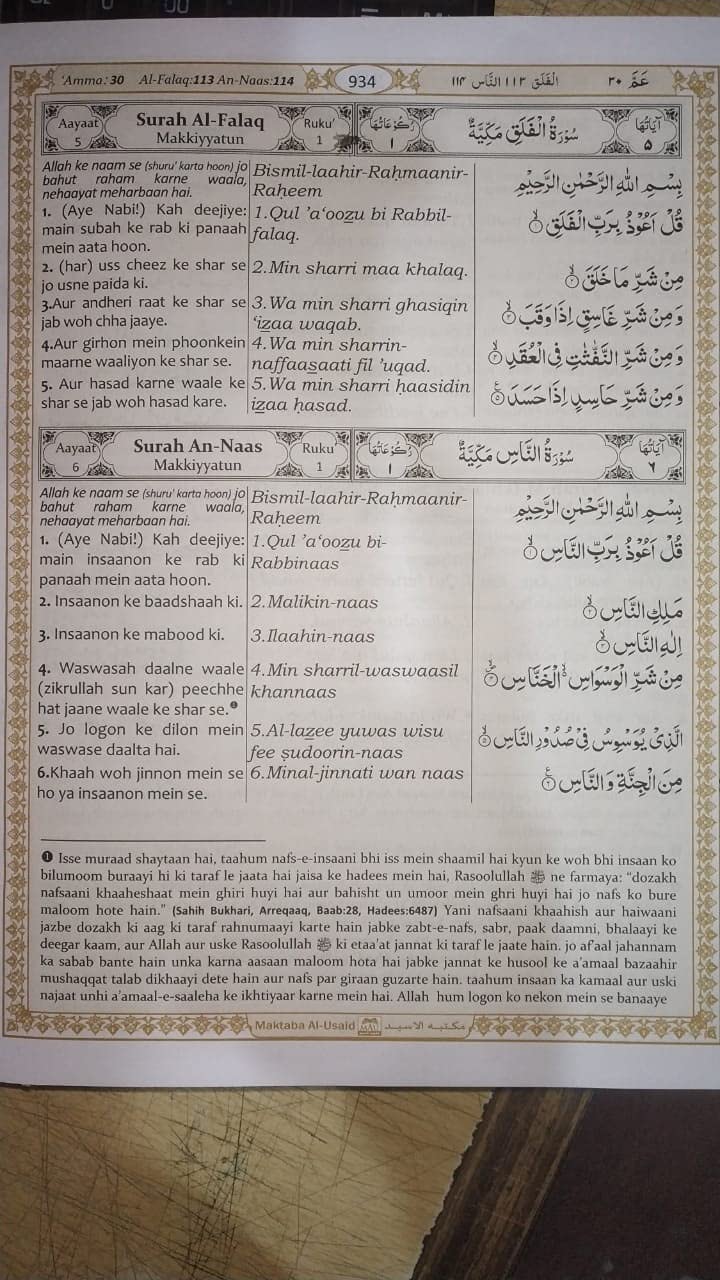 'Amma: 30 Al-Falaq:113 An-Naas:114 934 الفَلَق ١١٣ النَّاس ١١٤ عَمَّ ٣٠
Aayaat
5
Surah Al-Falaq
Makkiyyatun
Ruku'
1
رُكُوْعَاتُهَا
١
سُوْرَةُ الْفَلَقِ مَكِّيَّةٌ
آيَاتُهَا
٥
Allah ke naam se (shuru' karta hoon) jo
bahut raham karne waala,
nehaayat meharbaan hai.
1. (Aye Nabi!) Kah deejiye:
main subah ke rab ki panaah
mein aata hoon.
2. (har) uss cheez ke shar se
jo usne paida ki.
3.Aur andheri raat ke shar se
jab woh chha jaaye.
4.Aur girhon mein phoonkein
maarne waaliyon ke shar se.
5. Aur hasad karne waale ke
shar se jab woh hasad kare.
Bismil-laahir-Raḥmaanir-
Raḥeem
1.Qul 'a‘oozu bi Rabbil-
falaq.
2.Min sharri maa khalaq.
3.Wa min sharri ghasiqin
‘izaa waqab.
4.Wa min sharrin-
naffaasaati fil 'uqad.
5.Wa min sharri ḥaasidin
izaa ḥasad.
بِسْمِ اللّٰهِ الرَّحْمٰنِ الرَّحِيْمِ
قُلْ اَعُوْذُ بِرَبِّ الْفَلَقِ ۙ١
مِنْ شَرِّ مَا خَلَقَ ۙ٢
وَمِنْ شَرِّ غَاسِقٍ اِذَا وَقَبَ ۙ٣
وَمِنْ شَرِّ النَّفّٰثٰتِ فِى الْعُقَدِ ۙ٤
وَمِنْ شَرِّ حَاسِدٍ اِذَا حَسَدَ ٥
Aayaat
6
Surah An-Naas
Makkiyyatun
Ruku'
1
رُكُوْعَاتُهَا
١
سُوْرَةُ النَّاسِ مَكِّيَّةٌ
آيَاتُهَا
٦
Allah ke naam se (shuru' karta hoon) jo
bahut raham karne waala,
nehaayat meharbaan hai.
1. (Aye Nabi!) Kah deejiye:
main insaanon ke rab ki
panaah mein aata hoon.
2. Insaanon ke baadshaah ki.
3. Insaanon ke mabood ki.
4. Waswasah daalne waale
(zikrullah sun kar) peechhe
hat jaane waale ke shar se.❶
5. Jo logon ke dilon mein
waswase daalta hai.
6.Khaah woh jinnon mein se
ho ya insaanon mein se.
Bismil-laahir-Raḥmaanir-
Raḥeem
1.Qul 'a‘oozu bi-
Rabbinaas
2.Malikin-naas
3.Ilaahin-naas
4.Min sharril-waswaasil
khannaas
5.Al-lazee yuwas wisu
fee ṣudoorin-naas
6.Minal-jinnati wan naas
بِسْمِ اللّٰهِ الرَّحْمٰنِ الرَّحِيْمِ
قُلْ اَعُوْذُ بِرَبِّ النَّاسِ ۙ١
مَلِكِ النَّاسِ ۙ٢
اِلٰهِ النَّاسِ ۙ٣
مِنْ شَرِّ الْوَسْوَاسِ ۙ الْخَنَّاسِ ٤
الَّذِىْ يُوَسْوِسُ فِىْ صُدُوْرِ النَّاسِ ۙ٥
مِنَ الْجِنَّةِ وَالنَّاسِ ٦
❶ Isse muraad shaytaan hai, taahum nafs-e-insaani bhi iss mein shaamil hai kyun ke woh bhi insaan ko
bilumoom buraayi hi ki taraf le jaata hai jaisa ke hadees mein hai, Rasoolullah ﷺ ne farmaya: “dozakh
nafsaani khaaheshaat mein ghiri huyi hai aur bahisht un umoor mein ghri huyi hai jo nafs ko bure
maloom hote hain.” (Sahih Bukhari, Arreqaaq, Baab:28, Hadees:6487) Yani nafsaani khaahish aur haiwaani
jazbe dozakh ki aag ki taraf rahnumaayi karte hain jabke zabt-e-nafs, sabr, paak daamni, bhalaayi ke
deegar kaam, aur Allah aur uske Rasoolullah ﷺ ki etaa'at jannat ki taraf le jaate hain. jo af'aal jahannam
ka sabab bante hain unka karna aasaan maloom hota hai jabke jannat ke husool ke a'amaal bazaahir
mushaqqat talab dikhaayi dete hain aur nafs par giraan guzarte hain. taahum insaan ka kamaal aur uski
najaat unhi a'amaal-e-saaleha ke ikhtiyaar karne mein hai. Allah hum logon ko nekon mein se banaaye
Maktaba Al-Usaid مكتبه الاسيد